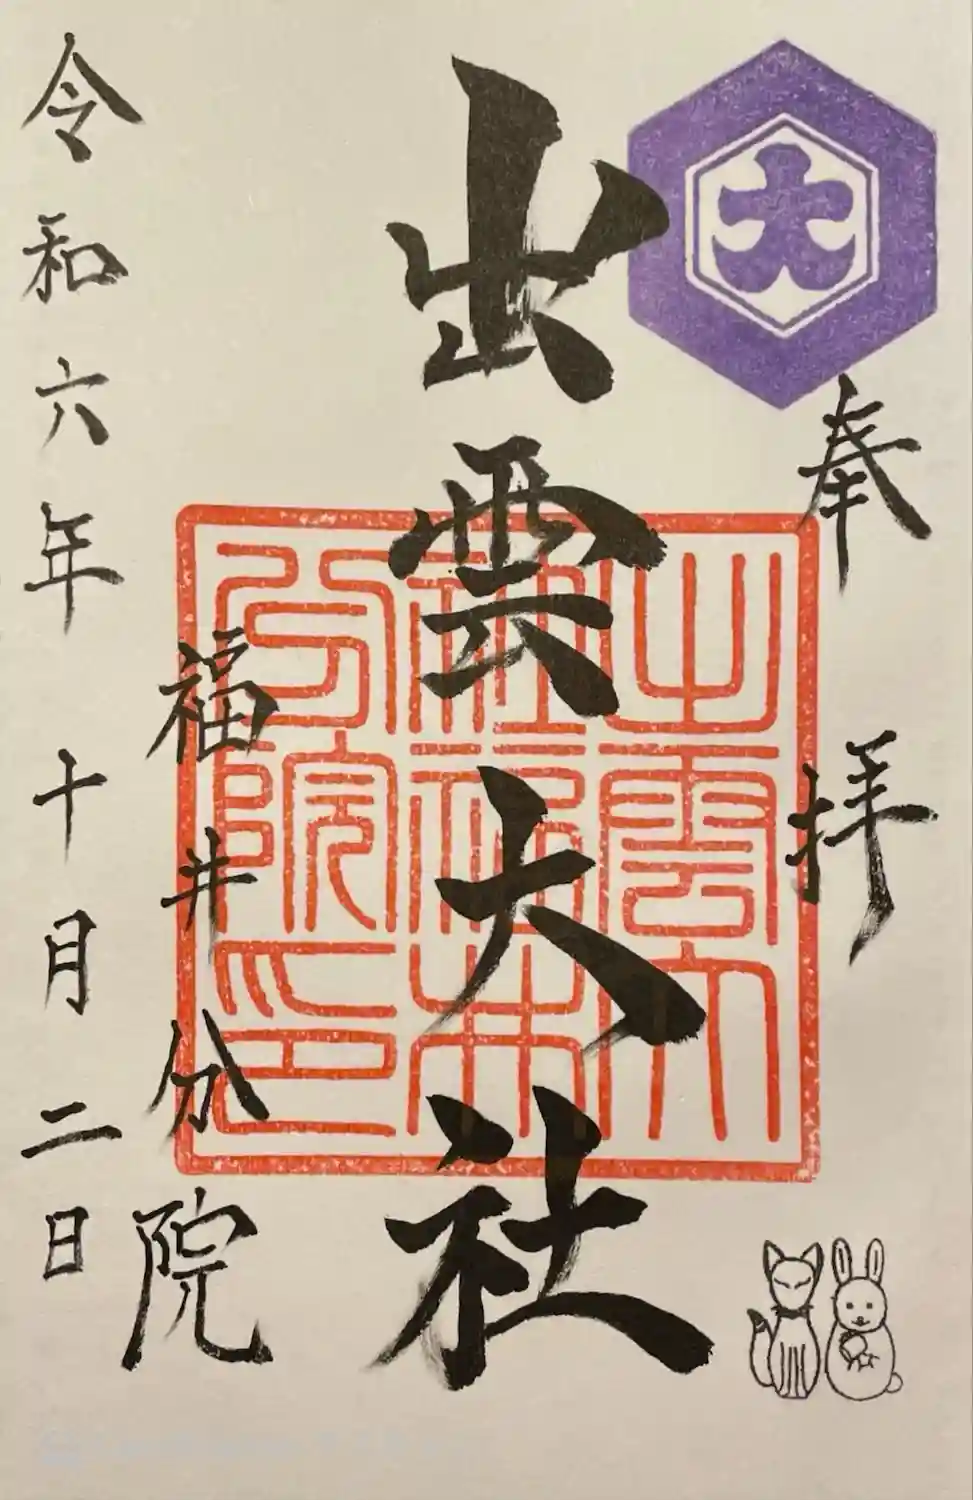 奉拝
大
出雲大社
出雲大社福井分院之印
福井分院
令和六年十月二日